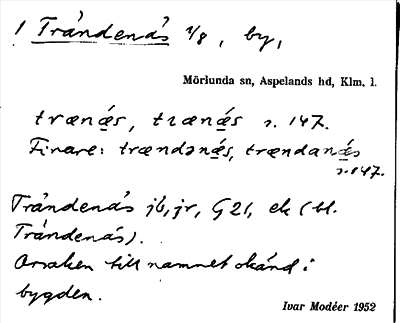 1 Trändenäs 1/8, by,
Mörlunda sn, Aspelands hd, Klm. l.
trænǽs, trænǽs s. 147.
Finare: trændənǽs, trændanǽs
s. 147.
Trändenäs jb, jr, G 21, ek (bl.
Trändenäs).
Orsaken till namnet okänd i
bygden.
Ivar Modéer 1952